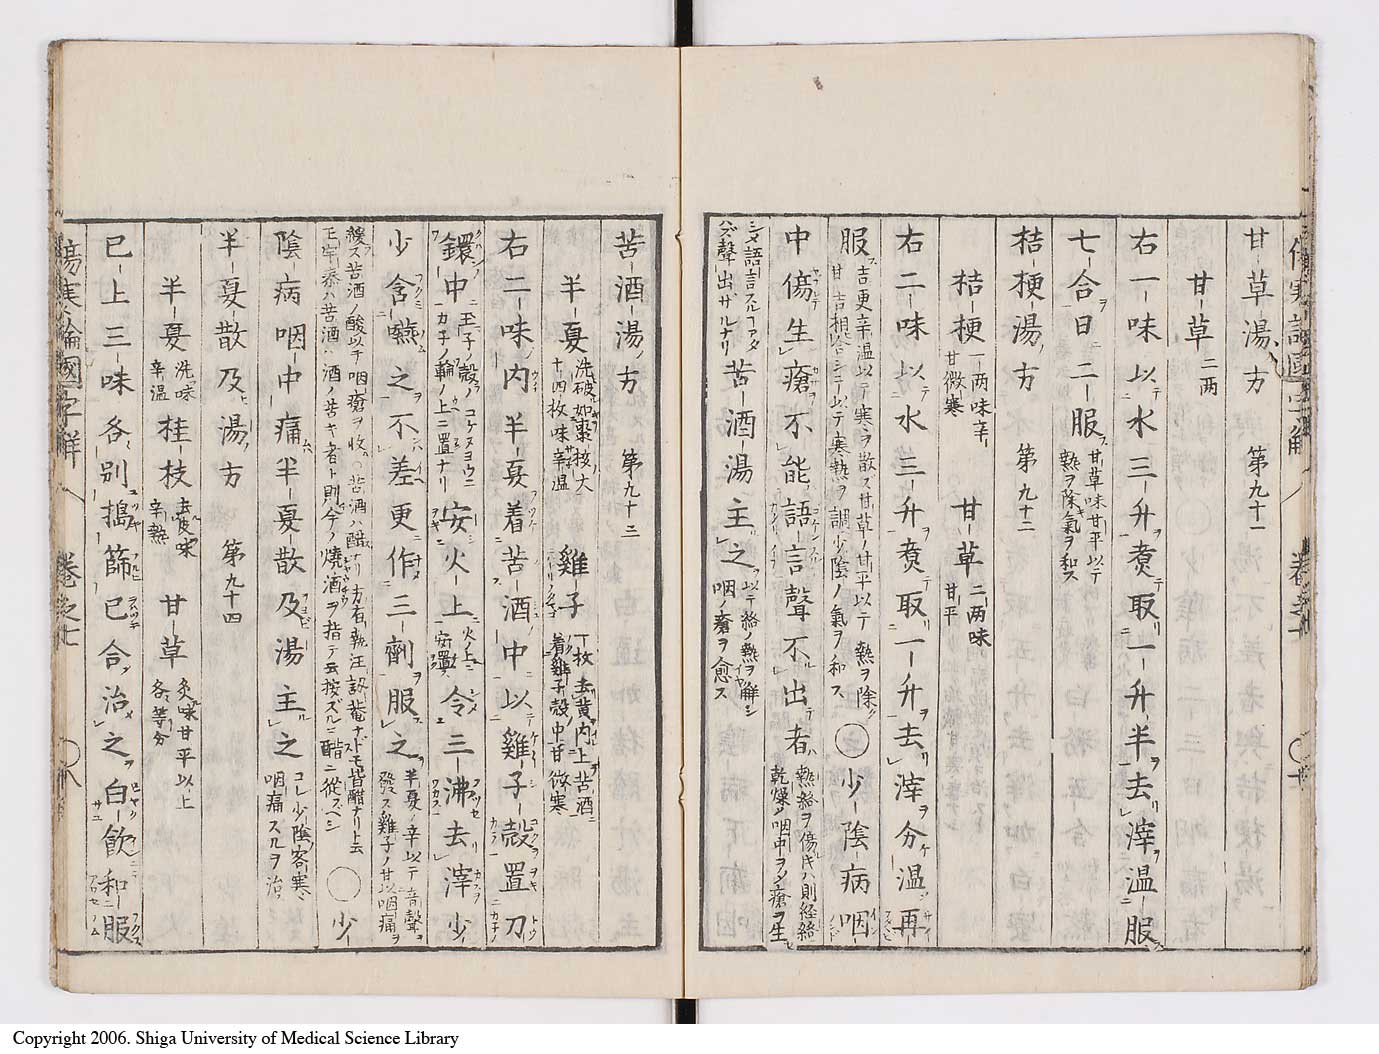 甘草湯方　第九十一
甘草二両
右一味以水三升煮取一升半去滓温服
七合日二服 甘草味甘平以テ熱ヲ除氣ヲ和ス
桔梗湯方　第九十二
桔梗一両味辛甘微寒　甘草二両味甘平
右二味以水三升煮取一升去滓分温再
服 吉更辛温以テ寒ヲ散ズ甘草ノ甘平以テ熱ヲ除ク甘吉相合シテ以テ寒熱ヲ調少陰ノ氣ヲ和ス ○少陰病咽
中傷生瘡不能語言聲不出者 熱絡ヲ傷キハ則経絡乾燥シ咽中ヲシメ瘡ヲ生
シメ語言スルヿアタハズ聲出ザルナリ 苦酒湯主之 以テ絡ノ熱ヲ解シ咽ノ瘡ヲ愈ス
苦酒湯方　第九十三
半夏洗破如棗核大十四枚味辛温　雞子一枚去黄内上苦酒着雞子殻中甘微寒
右二味内半夏着苦酒中以雞子殻置刀
鐶中 玉子ノ殻ヲコケヌヨウニカチノ輪ノ上ニ置ナリ 安火上 火ノ上ニ安置 令三沸去滓少
少含嚥之不差更作三劑服之 半夏ノ辛以テ音聲ヲ發ス雞子ノ甘以咽痛ヲ
緩ス苦酒ノ酸以テ咽瘡ヲ收
陰病咽中痛半夏散及湯主之 コレ少陰客寒咽痛スルヲ治
半夏散及湯方　第九十四
半夏洗味辛温　桂枝去皮味辛熱　甘草炙味甘平以上各等分
已上三味各別搗篩已合治之白飲和服
傷寒論國字解　卷之七